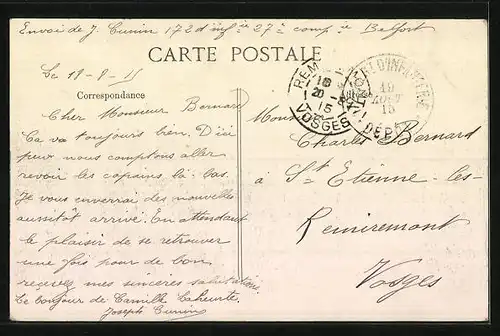 Envoi de J. Cunin 172d infie 27e compie Belfort
CARTE POSTALE
Le 18-8-15
Correspondance
Cher Monsieur Bernard
Ca va toujours bien. D'ici
peu nous comptons aller
revoir les copains là-bas.
Je vous enverrai des nouvelles
aussitôt arrivé. En attendant
le plaisir de se retrouver
une fois pour de bon
recevez mes sincères salutations.
Le bonjour de Camille
Joseph Cunin
Monsieur
Charles Bernard
à St Etienne-les-
Remiremont
Vosges
REMIREMONT
20-8
15
VOSGES
19
AOUT
15
DEPOT